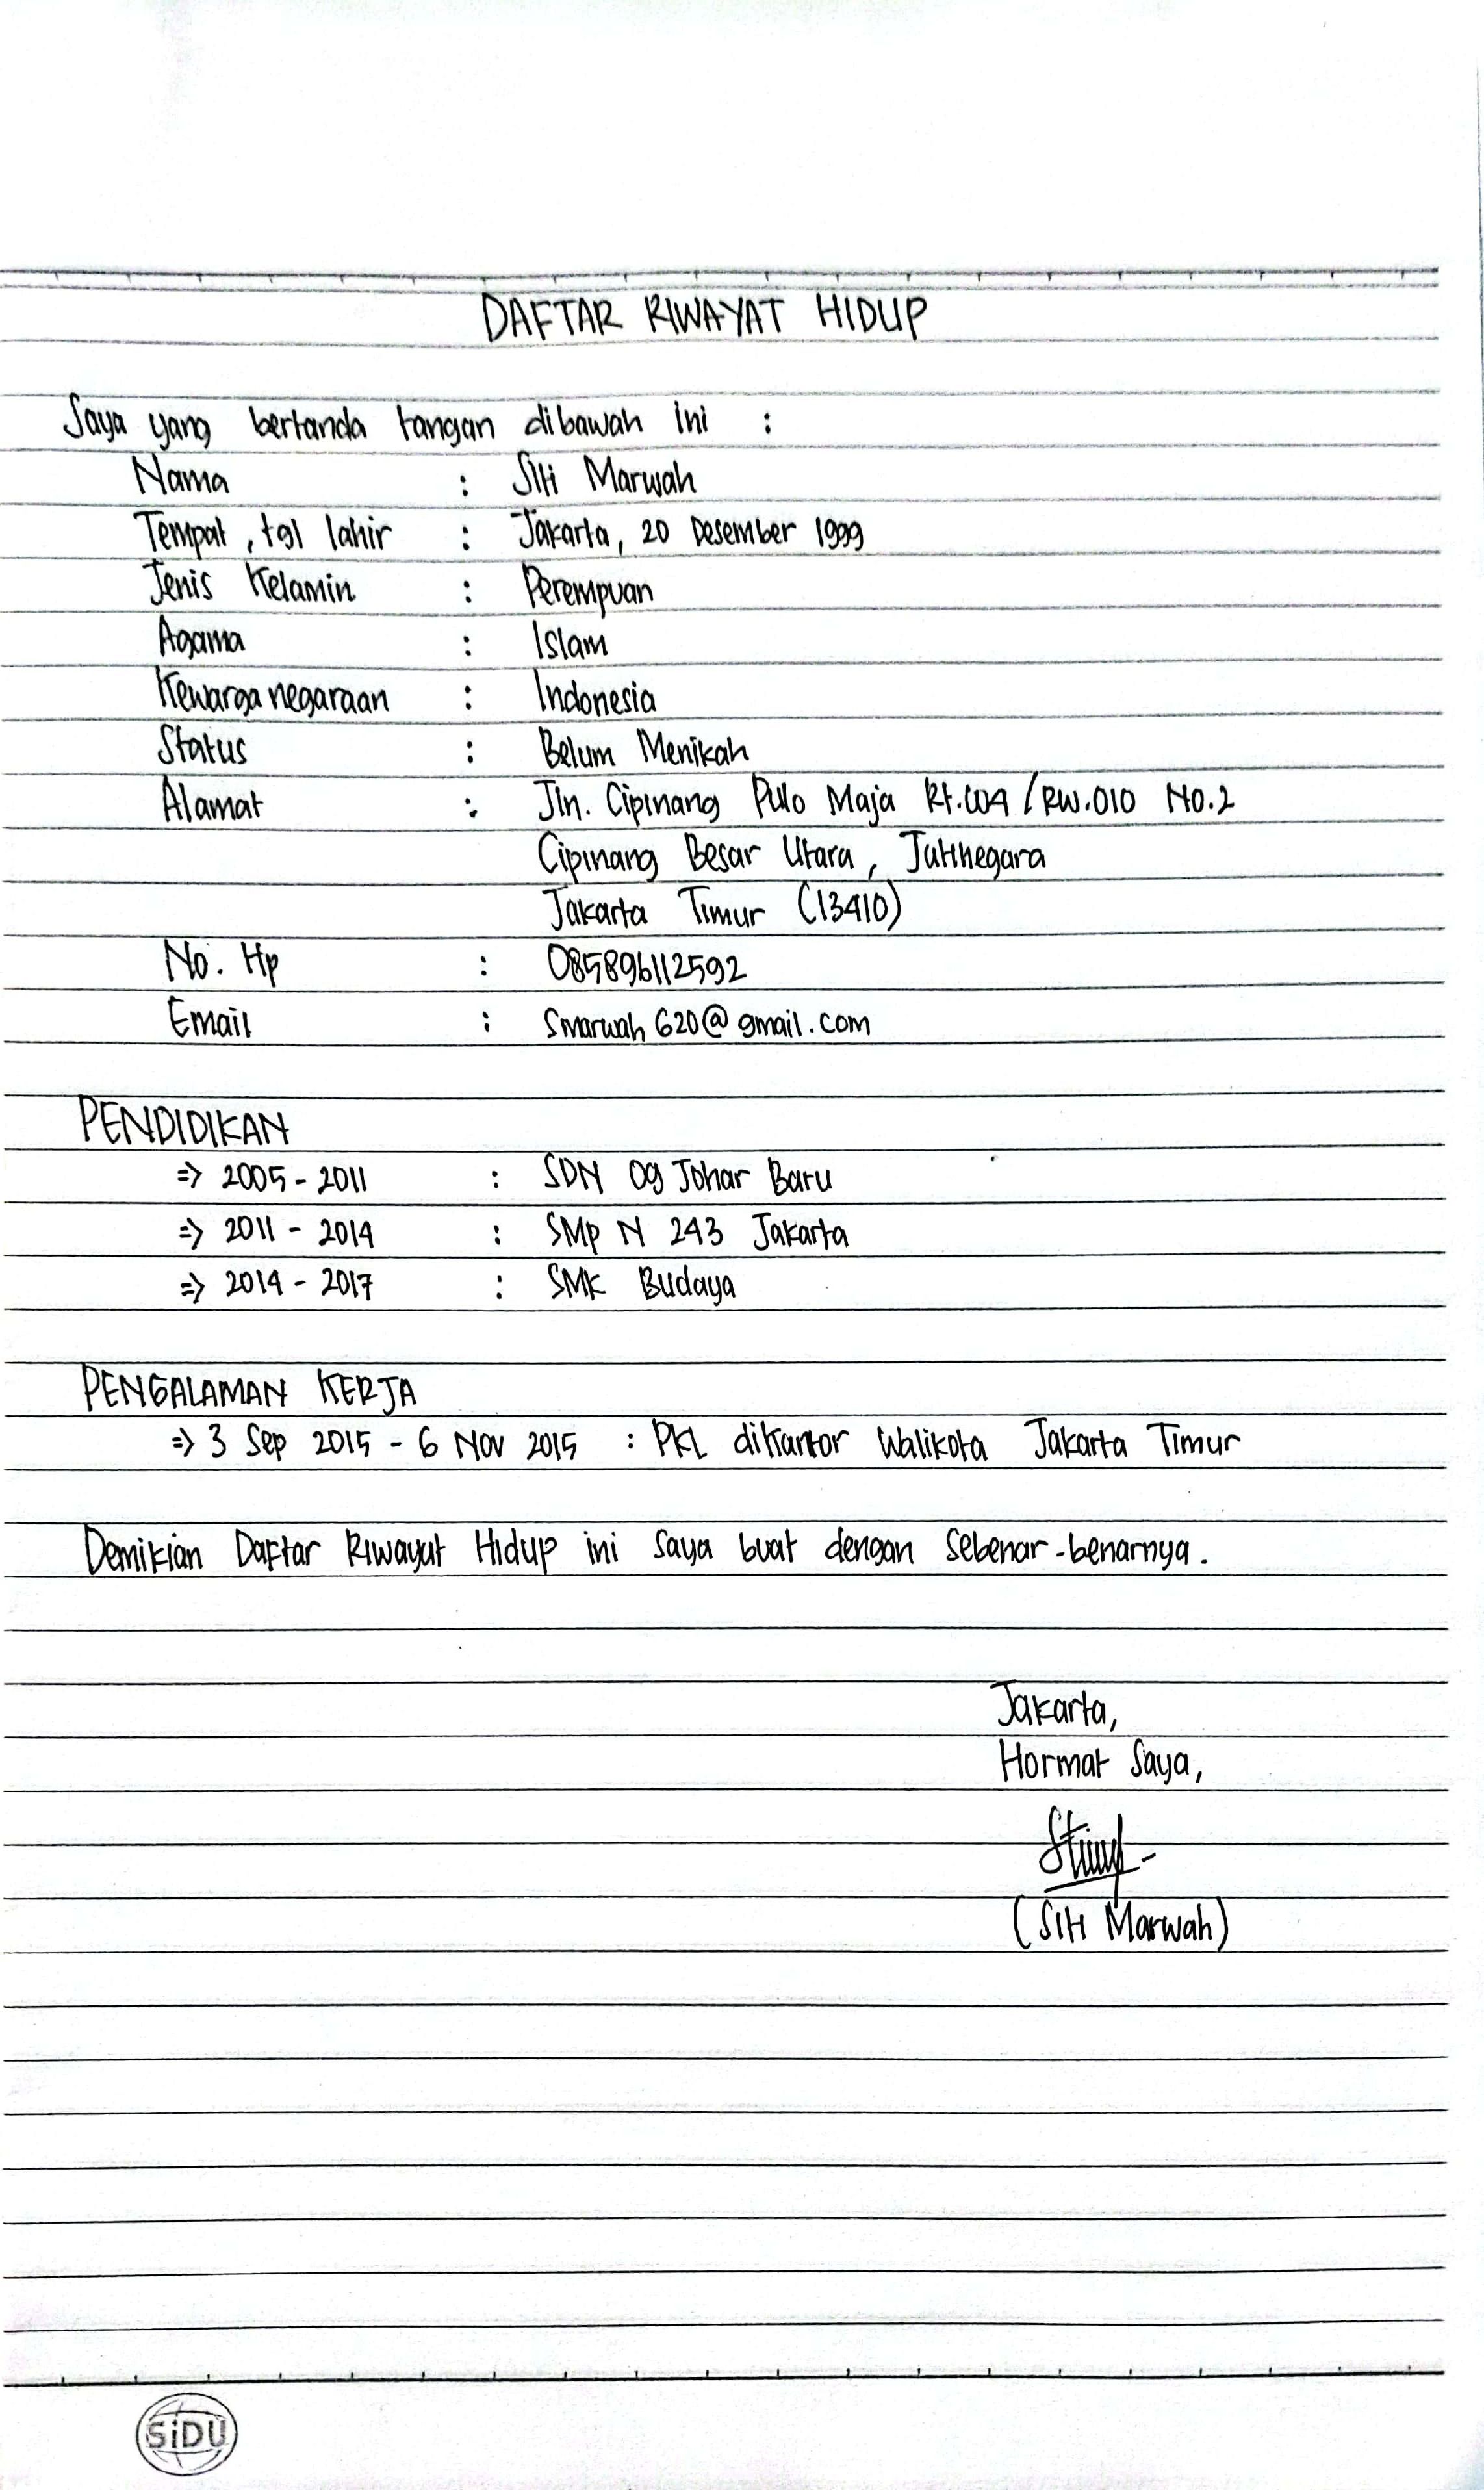 DAFTAR RIWAYAT HIDUP
Saya yang bertanda tangan dibawah ini :
Nama : Siti Marwah
Tempat, tgl lahir : Jakarta, 20 Desember 1999
Jenis Kelamin : Perempuan
Agama : Islam
Kewarganegaraan : Indonesia
Status : Belum Menikah
Alamat : Jln. Cipinang Pulo Maja Rt.004 / RW.010 No.2
Cipinang Besar Utara, Jatinegara
Jakarta Timur (13410)
No. Hp : 085896112592
Email : Smarwah620@gmail.com
PENDIDIKAN
=> 2005 - 2011 : SDN 09 Johar Baru
=> 2011 - 2014 : SMP N 243 Jakarta
=> 2014 - 2017 : SMK Budaya
PENGALAMAN KERJA
=> 3 Sep 2015 - 6 Nov 2015 : PKL dikantor Walikota Jakarta Timur
Demikian Daftar Riwayat Hidup ini saya buat dengan sebenar-benarnya.
Jakarta,
Hormat Saya,
(Siti Marwah)
SiDU